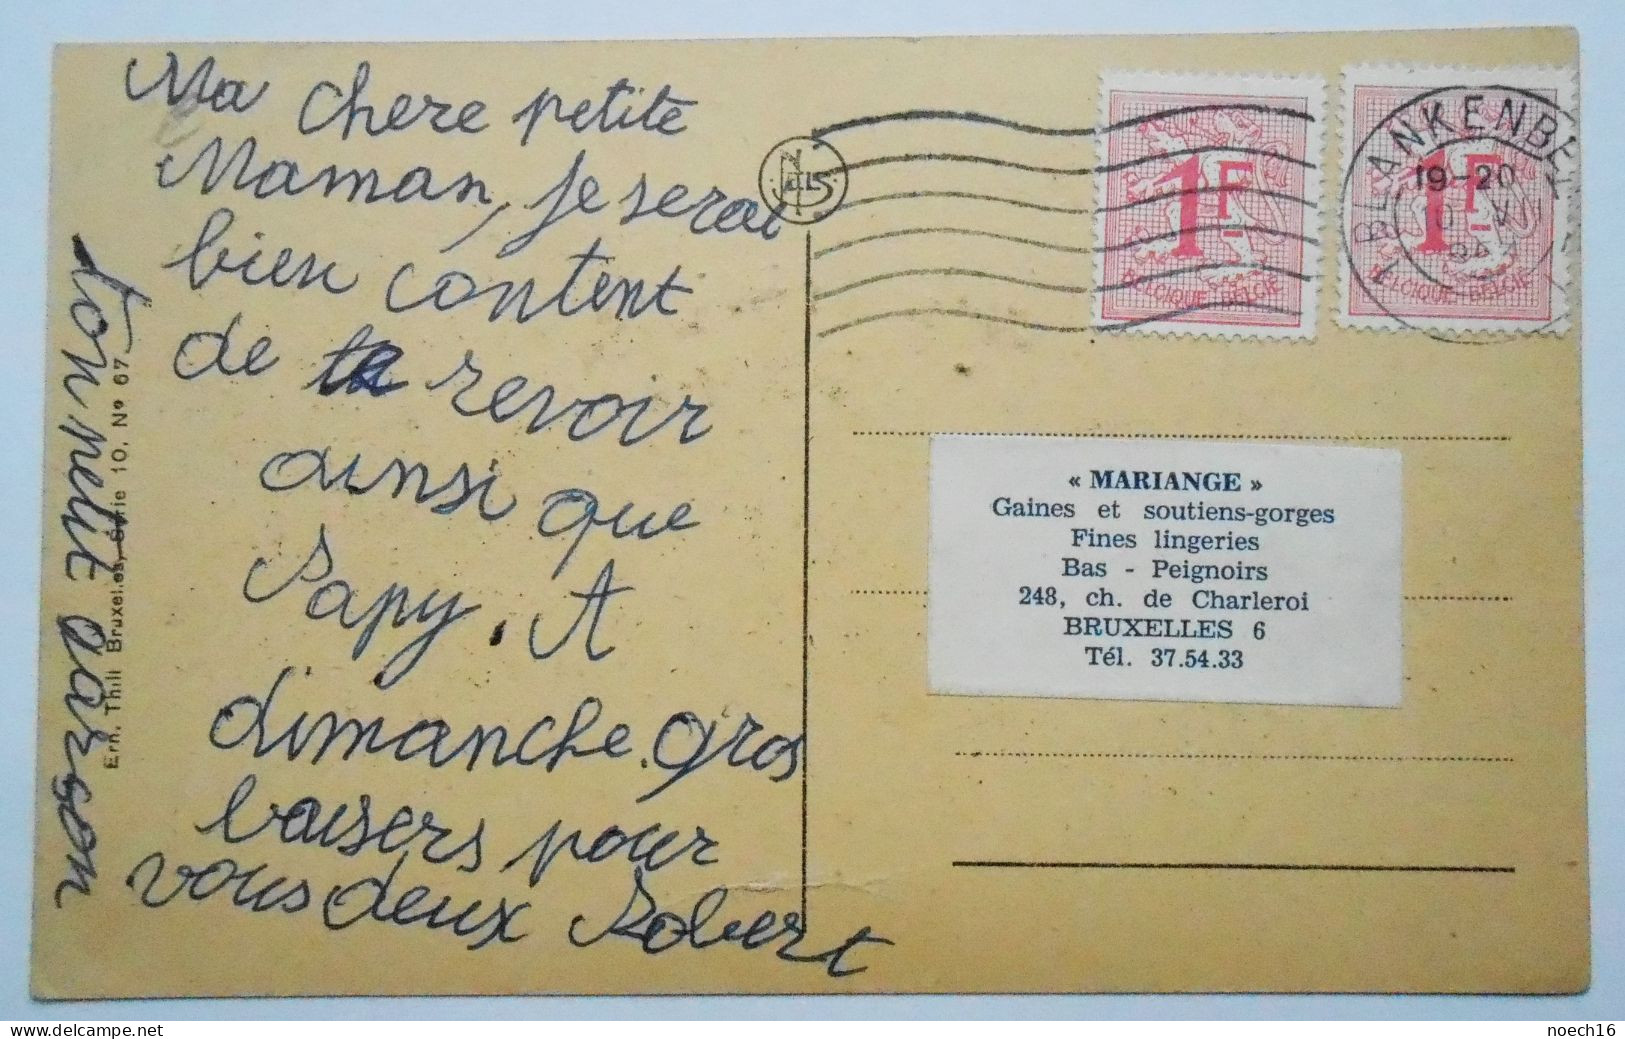 Ma chere petite
Maman, je serai
bien content
de te revoir
ainsi que
Papy. A
dimanche. gros
baisers pour
vous deux Robert
ton petit garson
Ern. Thill Bruxelles, Série 10, N° 67
NELS
1F
BELGIQUE-BELGIE
1F
BELGIQUE-BELGIE
BLANKENBE
19-20
« MARIANGE »
Gaines et soutiens-gorges
Fines lingeries
Bas - Peignoirs
248, ch. de Charleroi
BRUXELLES 6
Tél. 37.54.33
noech16